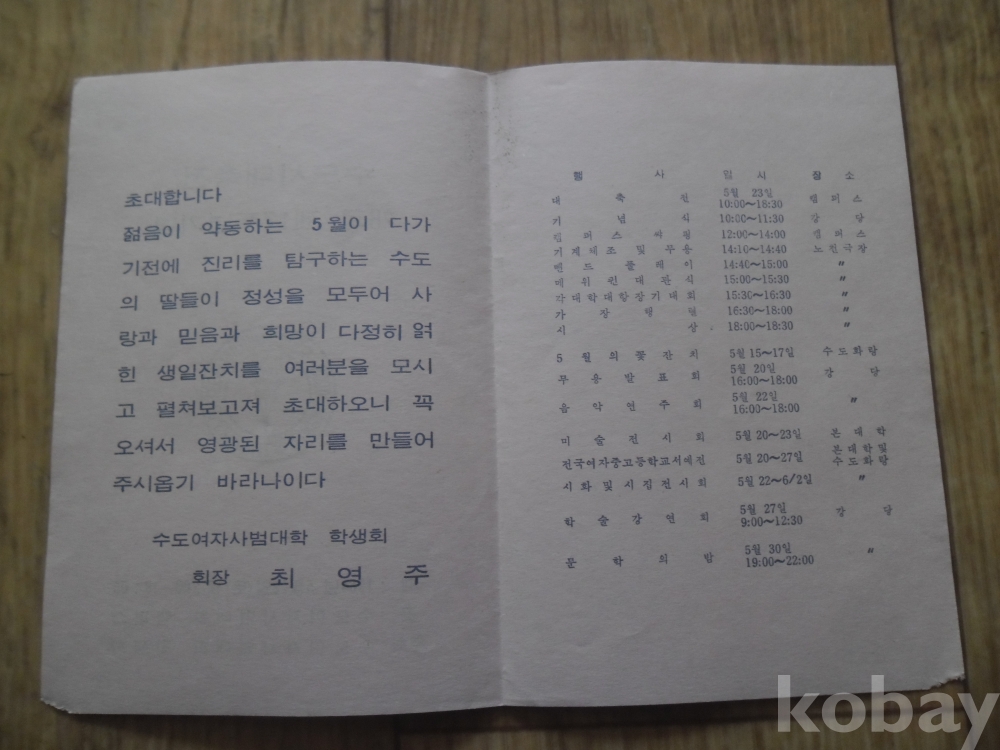 초대합니다
젊음이 약동하는 5월이 다가
기전에 진리를 탐구하는 수도
의 딸들이 정성을 모두어 사
랑과 믿음과 희망이 다정히 얽
힌 생일잔치를 여러분을 모시
고 펼쳐보고져 초대하오니 꼭
오셔서 영광된 자리를 만들어
주시옵기 바라나이다
수도여자사범대학 학생회
회장 최영주
행 사 일 시 장 소
대 축 전 5월 23일 10:00~18:30 캠퍼스
기 념 식 10:00~11:30 강 당
캠퍼스 12:00~14:00 캠퍼스
기계체조 및 무용 14:10~14:40 노천극장
밴드플레이 14:40~15:00 〃
메위퀸대관식 15:00~15:30 〃
각대학대항장기대회 15:30~16:30 〃
가장행렬 16:30~18:00 〃
시 상 18:00~18:30 〃
5월의꽃잔치 5월 15~17일 수도화랑
무용발표회 5월 20일 16:00~18:00 강 당
음악연주회 5월 22일 16:00~18:00 〃
미술전시회 5월 20~23일 본대학
전국여자중고등학교서예전 5월 20~27일 본대학및 수도화랑
시화및시집전시회 5월 22~6/2일 〃
학술강연회 5월 27일 9:00~12:30 강 당
문학의밤 5월 30일 19:00~22:00 〃
kobay